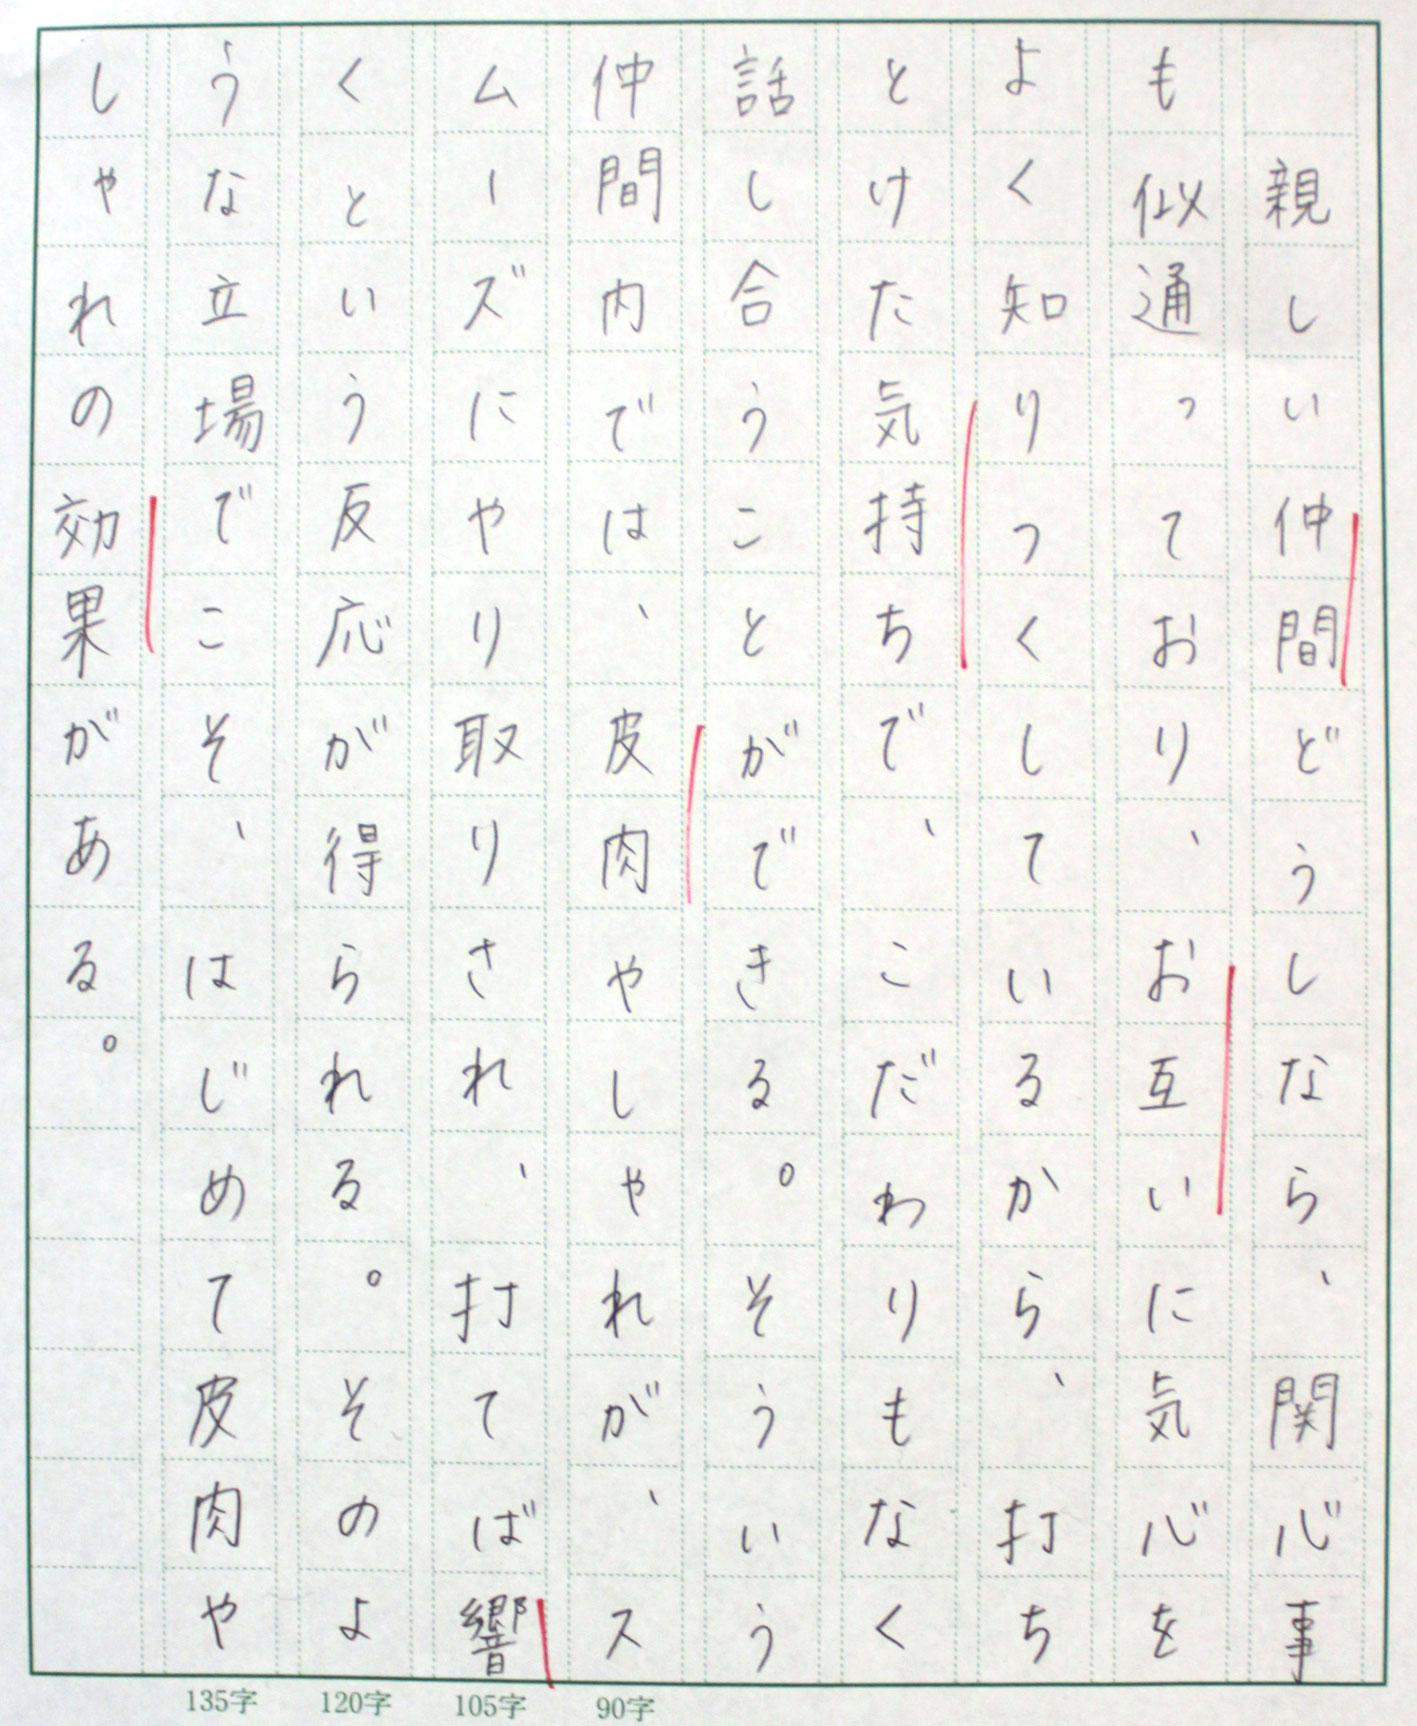 親しい仲間どうしなら、関心事
も似通っており、お互いに気心を
よく知りつくしているから、打ち
とけた気持ちで、こだわりもなく
話し合うことができる。そういう
仲間内では、皮肉やしゃれが、ス
ムーズにやり取りされ、打てば響
くという反応が得られる。そのよ
うな立場でこそ、はじめて皮肉や
しゃれの効果がある。
90字
105字
120字
135字